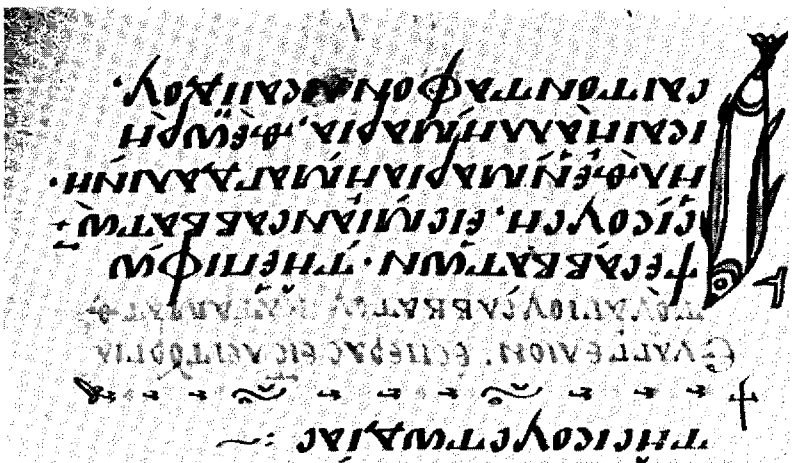 ΤΗϹ ΚΟΥϹΤΩΔΙΑϹ :~
ΕΥΑΓΓΕΛΙΟΝ. ΕϹΠΕΡΑϹ ΕΙϹ ΛΕΙΤΟΡΓΙΑ
ΤΟΥ ΑΓΙΟΥ ϹΑΒΒΑΤΟΥ ΚΑΤΑ ΜΑΤΘ
ΟΨΕ ϹΑΒΒΑΤΩΝ · ΤΗ ΕΠΙΦΩ
ϹΚΟΥϹΗ. ΕΙϹ ΜΙΑΝ ϹΑΒΒΑΤΩ
ΗΛΘΕΝ ΜΑΡΙΑ Η ΜΑΓΔΑΛΙΝΗ·
ΚΑΙ Η ΑΛΛΗ ΜΑΡΙΑ, ΘΕΩΡΗ
ϹΑΙ ΤΟΝ ΤΑΦΟΝ ΚΑΙ ΙΔΟΥ.